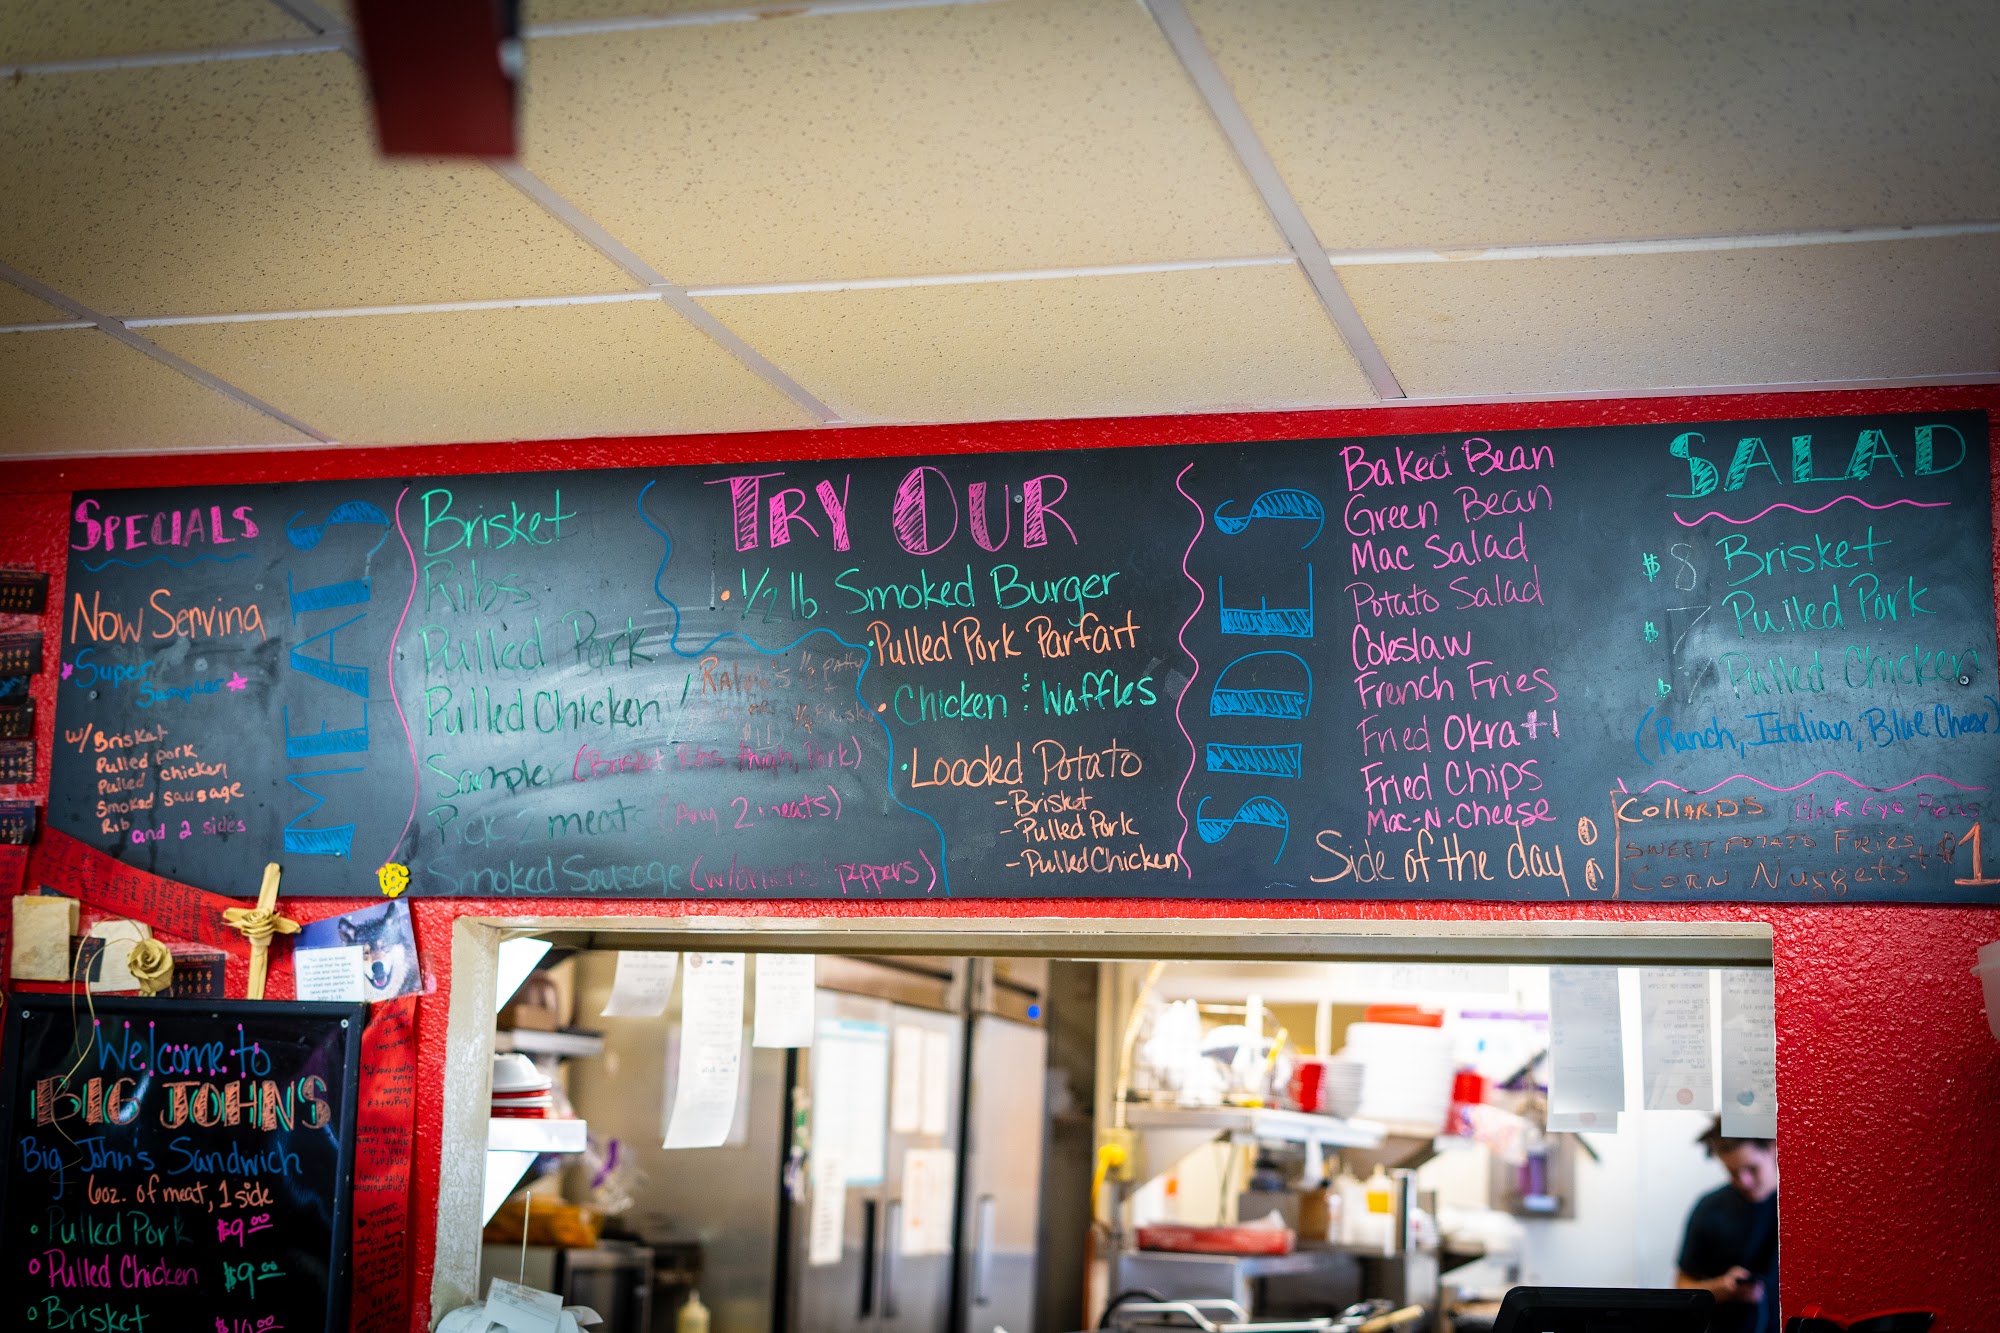 SPECIALS
Now Serving
Super
Sampler
w/ Brisket
Pulled pork
Pulled chicken
Smoked sausage
Rib
and 2 sides
MEATS
Brisket
Ribs
Pulled Pork
Pulled Chicken /
Sampler (Brisket Ribs thigh, Pork)
Pick 2 meats (Any 2 meats)
Smoked Sausage (w/onions peppers)
TRY OUR
• 1/2 lb. Smoked Burger
• Pulled Pork Parfait
• Chicken & Waffles
• Loaded Potato
- Brisket
- Pulled Pork
- Pulled Chicken
Ralph's 1/2 patty
SIDES
Baked Bean
Green Bean
Mac Salad
Potato Salad
Coleslaw
French Fries
Fried Okra +1
Fried Chips
Mac-N-Cheese
Side of the day :
COLLARDS Black Eye Peas
SWEET POTATO FRIES
CORN NUGGETS + $1
SALAD
$8 Brisket
$7 Pulled Pork
$7 Pulled Chicken
(Ranch, Italian, Blue Cheese)
Welcome to
BIG JOHN'S
Big John's Sandwich
6oz. of meat, 1 side
• Pulled Pork $9.00
• Pulled Chicken $9.00
• Brisket